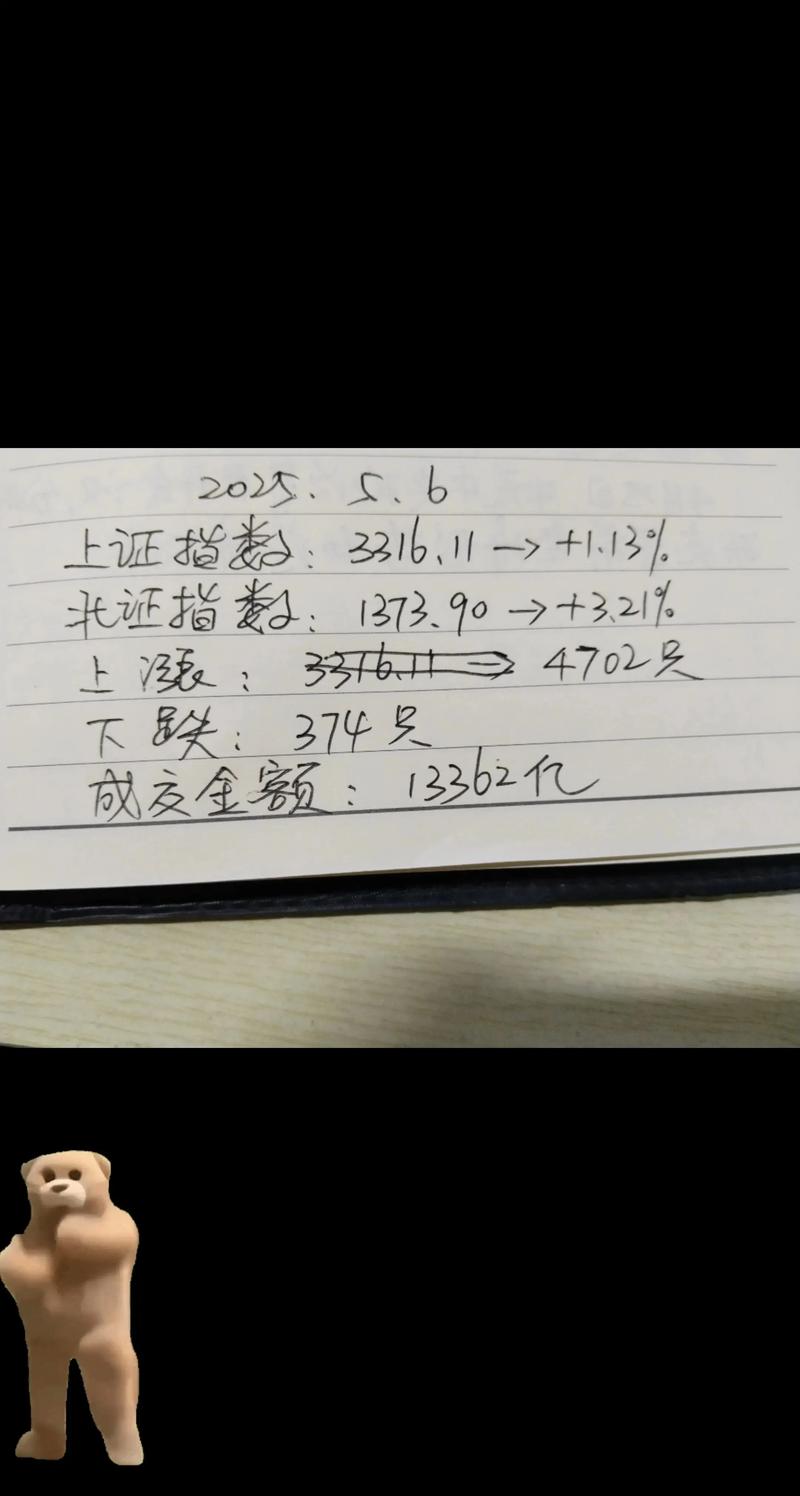 2025. 5. 6
上证指数: 3316.11 → +1.13%
北证指数: 1373.90 → +3.21%
上涨: 3316.11 → 4702只
下跌: 374只
成交金额: 13362亿